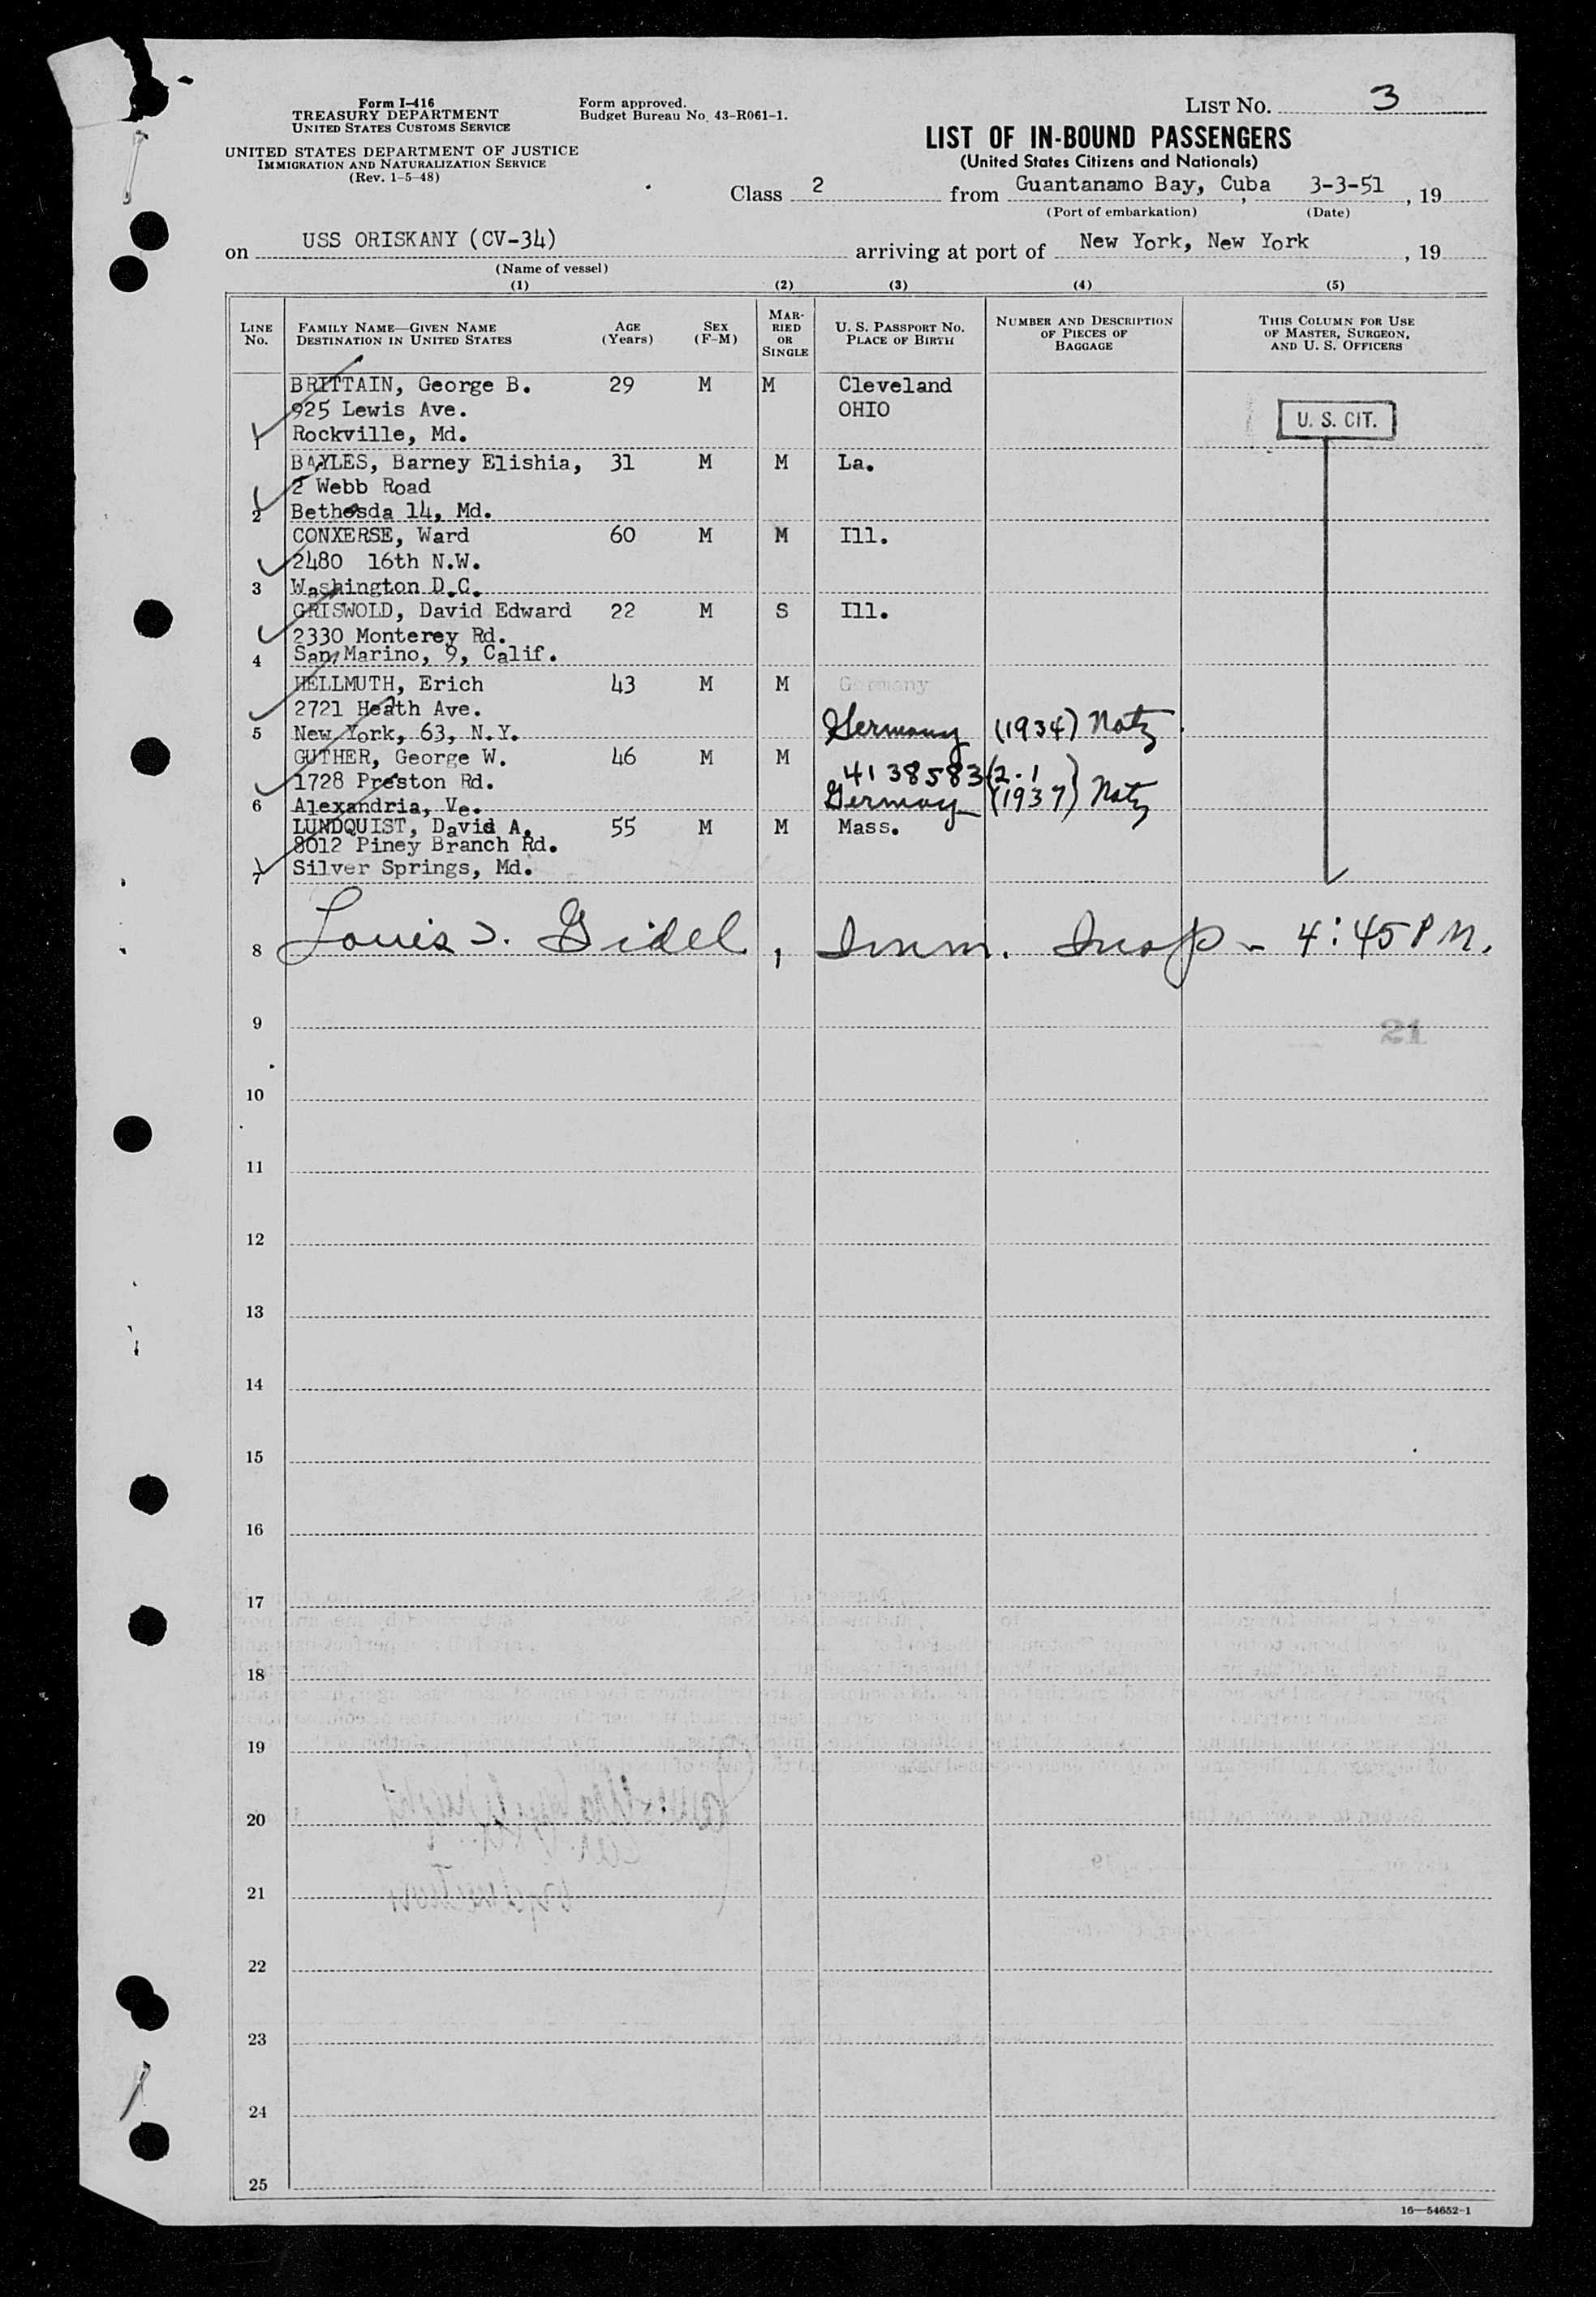 Form I-416
TREASURY DEPARTMENT
UNITED STATES CUSTOMS SERVICE
UNITED STATES DEPARTMENT OF JUSTICE
IMMIGRATION AND NATURALIZATION SERVICE
(Rev. 1-5-48)
Form approved.
Budget Bureau No. 43-R061-1.
LIST No. 3
LIST OF IN-BOUND PASSENGERS
(United States Citizens and Nationals)
Class 2 from Guantanamo Bay, Cuba, 3-3-51, 19
(Port of embarkation) (Date)
on USS ORISKANY (CV-34) arriving at port of New York, New York, 19
(Name of vessel)
(1) (2) (3) (4) (5)
LINE No. FAMILY NAME—GIVEN NAME DESTINATION IN UNITED STATES AGE (Years) SEX (F-M) MARRIED OR SINGLE U. S. PASSPORT NO. PLACE OF BIRTH NUMBER AND DESCRIPTION OF PIECES OF BAGGAGE THIS COLUMN FOR USE OF MASTER, SURGEON, AND U. S. OFFICERS
BRITTAIN, George B. 29 M M Cleveland
925 Lewis Ave. OHIO U. S. CIT.
1 Rockville, Md.
BAYLES, Barney Elishia, 31 M M La.
2 Webb Road
2 Bethesda 14, Md.
CONXERSE, Ward 60 M M Ill.
2480 16th N.W.
3 Washington D.C.
GRISWOLD, David Edward 22 M S Ill.
2330 Monterey Rd.
4 San Marino, 9, Calif.
HELLMUTH, Erich 43 M M Germany
2721 Heath Ave.
5 New York, 63, N.Y. Germany (1934) Natz
GUTHER, George W. 46 M M
1728 Preston Rd. 4138583 (2.1)
6 Alexandria, Ve. Germany (1937) Natz
LUNDQUIST, David A. 55 M M Mass.
8012 Piney Branch Rd.
7 Silver Springs, Md.
8 Louis J. Gidel, Imm. Insp - 4:45 PM.
9
21
10
11
12
13
14
15
16
17
18
19
20
21
22
23
24
25
16—54652-1